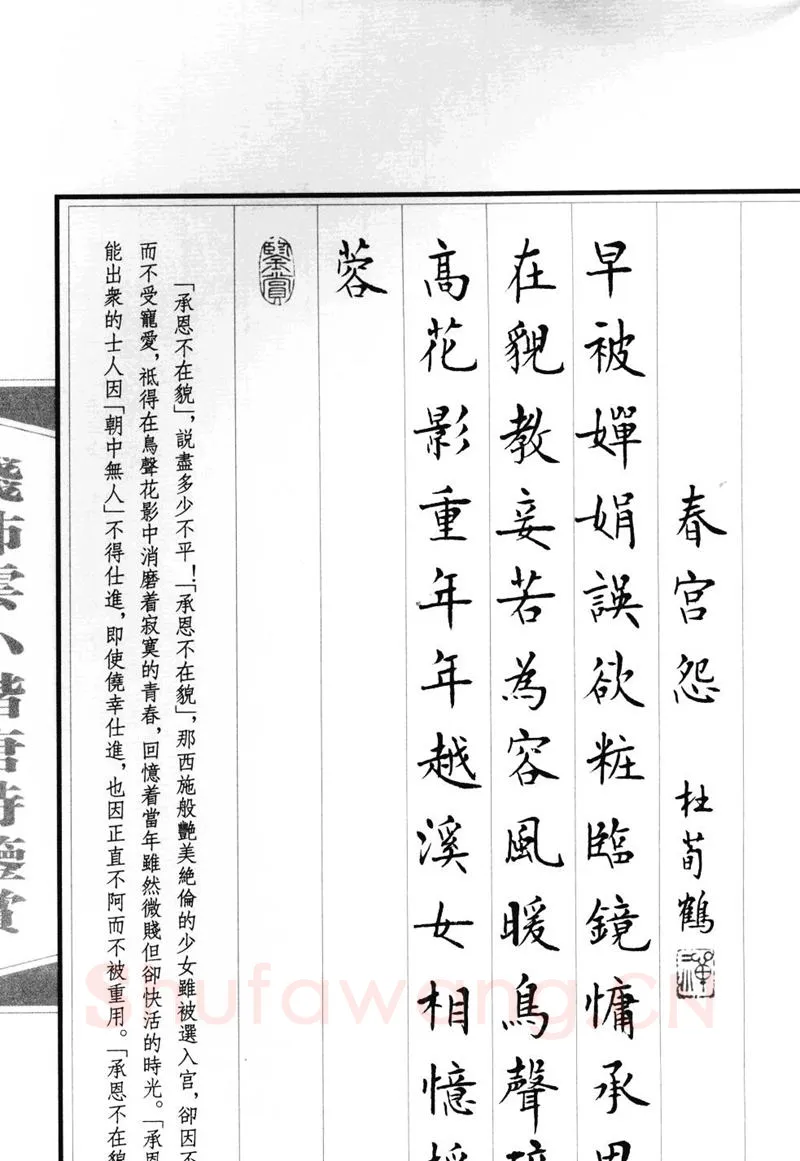 春宫怨 杜荀鶴
早被嬋娟誤欲粧臨鏡慵承恩
在貌教妾若為容風暖鳥聲碎
高花影重年年越溪女相憶採
蓉
鑒賞
「承恩不在貌」，説盡多少不平！「承恩不在貌」，那西施般艷美絶倫的少女雖被選入宫，卻因不
而不受寵愛，祗得在鳥聲花影中消磨着寂寞的青春，回憶着當年雖然微賤但卻快活的時光。「承恩
能出衆的士人因「朝中無人」不得仕進，即使僥幸仕進，也因正直不阿而不被重用。「承恩不在貌
小楷唐詩鑒賞
Shufawang.CN